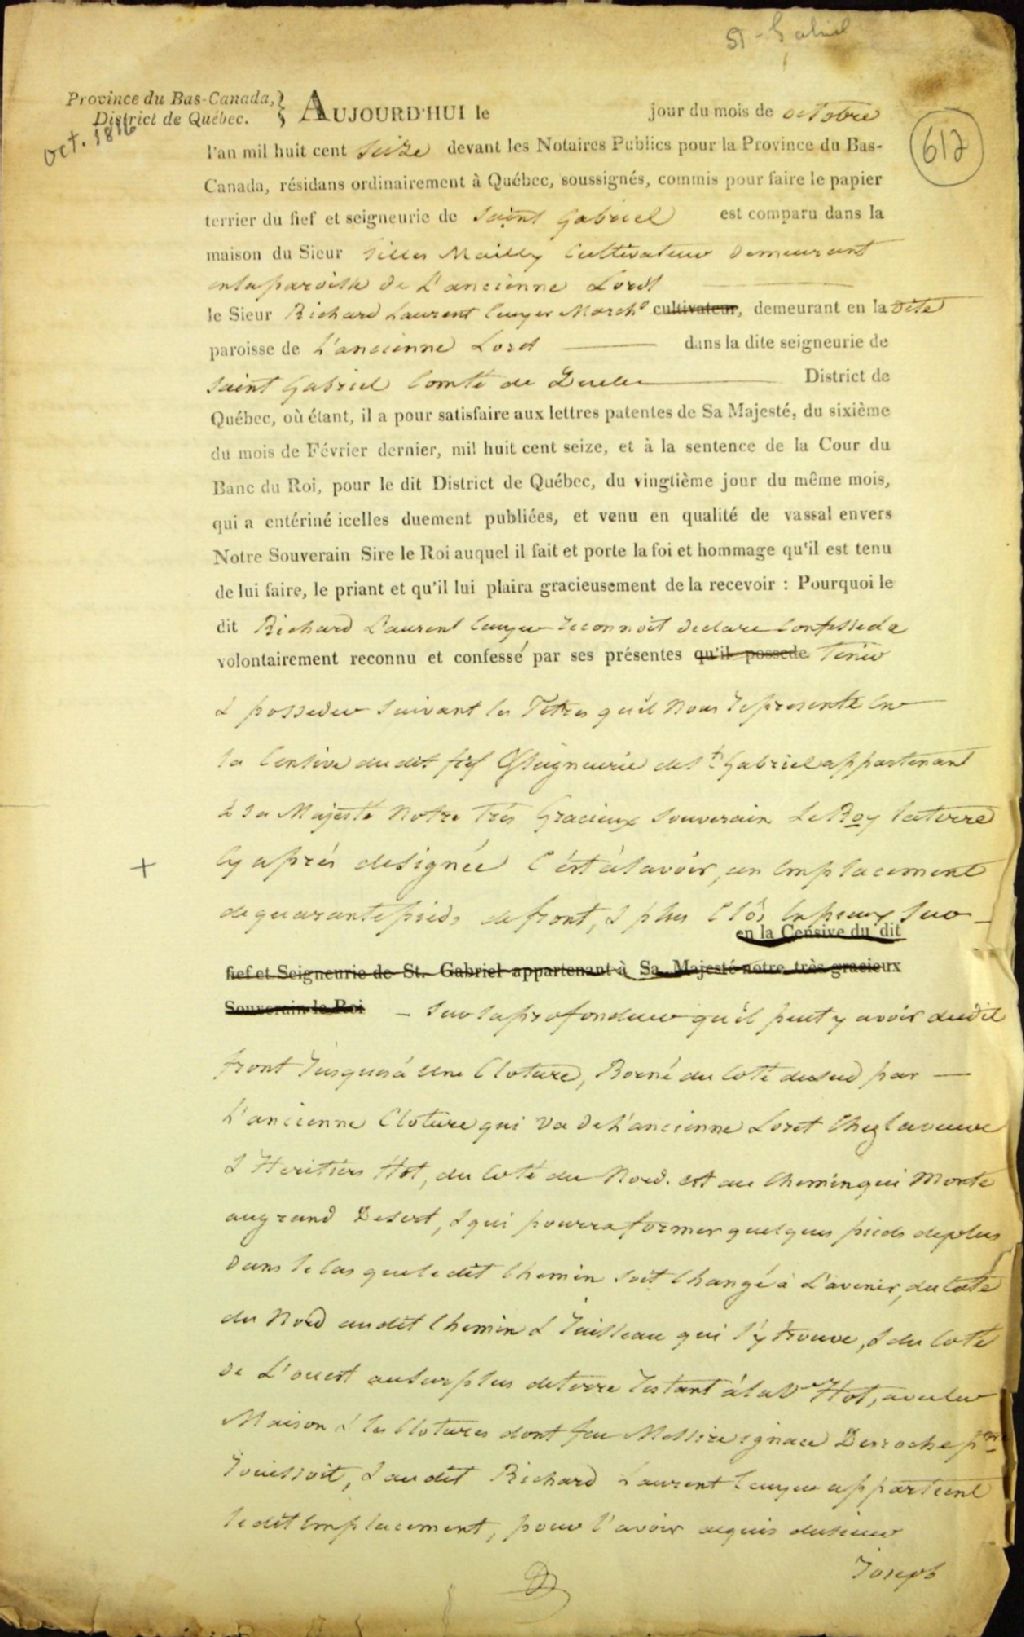 St-Gabriel
Province du Bas-Canada,
District de Québec.
Oct. 1816
612
AUJOURD'HUI le jour du mois de octobre
l'an mil huit cent seize devant les Notaires Publics pour la Province du Bas-
Canada, résidans ordinairement à Québec, soussignés, commis pour faire le papier
terrier du fief et seigneurie de Saint Gabriel est comparu dans la
maison du Sieur Gilles Mailly Cultivateur demeurant
en la paroisse de L'ancienne Loret
le Sieur Richard Laurent March^d cultivateur, demeurant en la dite
paroisse de L'ancienne Loret dans la dite seigneurie de
Saint Gabriel Comté de District de
Québec, où étant, il a pour satisfaire aux lettres patentes de Sa Majesté, du sixième
du mois de Février dernier, mil huit cent seize, et à la sentence de la Cour du
Banc du Roi, pour le dit District de Québec, du vingtième jour du même mois,
qui a entériné icelles duement publiées, et venu en qualité de vassal envers
Notre Souverain Sire le Roi auquel il fait et porte la foi et hommage qu'il est tenu
de lui faire, le priant et qu'il lui plaira gracieusement de la recevoir : Pourquoi le
dit Richard Laurent reconnoit declare
volontairement reconnu et confessé par ses présentes qu'il possede tenir
& posseder suivant les Titres qu'il nous represente en
la Censive du dit fief & Seigneurie de St. Gabriel appartenant
à sa Majesté Notre très Gracieux Souverain Le Roy la terre
cy après designée C'est à savoir, un emplacement
de quarante pieds de front, & plus
en la Censive du dit
fief et Seigneurie de St. Gabriel appartenant à Sa Majesté notre très gracieux
Souverain le Roi — sur la profondeur qu'il peut y avoir dudit
front jusques à une Cloture, Borné du coté du sud par —
L'ancienne Cloture qui va de L'ancienne Loret chez la veuve
& Heritiers Hot, du coté du Nord-est au chemin qui monte
au grand Desert, & qui pourra former quelques pieds de plus
dans le cas que le dit chemin soit changé à L'avenir, du coté
du Nord au dit chemin & ruisseau qui s'y trouve, & du coté
de L'ouest au surplus de terre restant à la V^ve Hot, avec la
Maison & les Clotures dont feu Messire ignace Desroche p^tre
jouissoit, & au dit Richard Laurent appartient
le dit emplacement, pour l'avoir aquis du sieur
Joseph